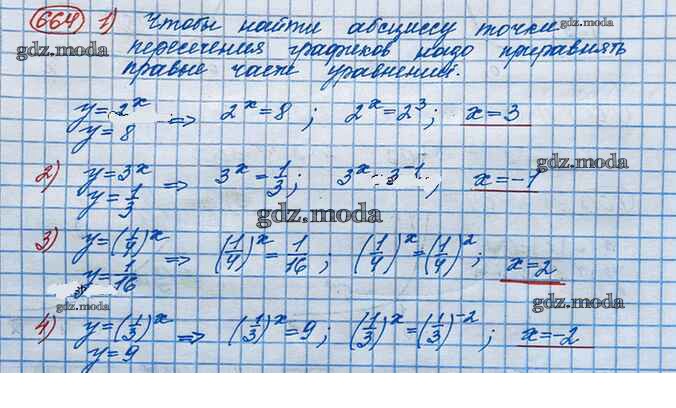 664 1) Чтобы найти абсциссу точки
gdz.moda gdz.moda
пересечения графиков надо приравнять
правые части уравнений.
gdz.moda
y=2^x
y=8 => 2^x=8; 2^x=2^3; x=3
gdz.moda
2) y=3^x
y=1/3 => 3^x=1/3; 3^x=3^-1; x=-1
gdz.moda
3) y=(1/4)^x
y=1/16 => (1/4)^x=1/16; (1/4)^x=(1/4)^2; x=2
gdz.moda gdz.moda
4) y=(1/3)^x
y=9 => (1/3)^x=9; (1/3)^x=(1/3)^-2; x=-2